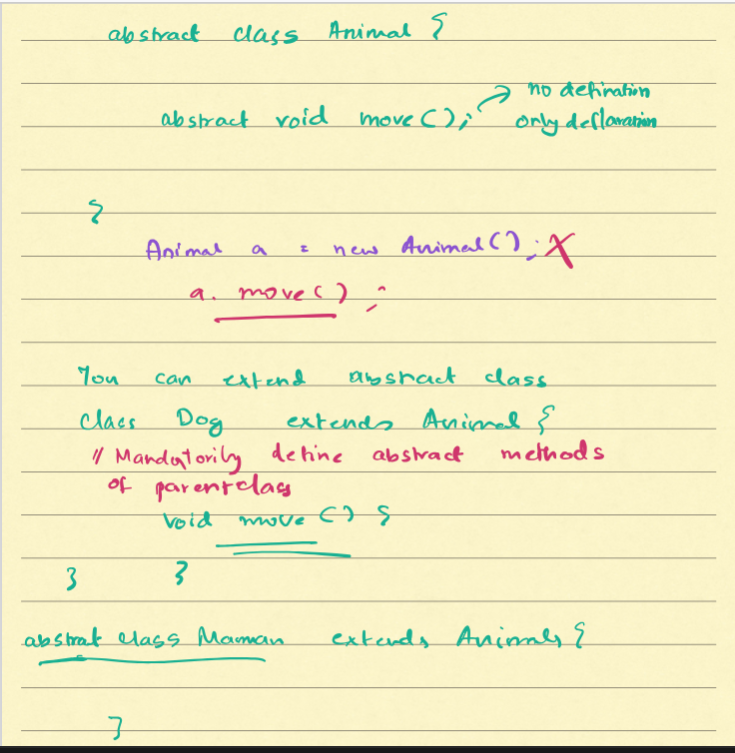 abstract class Animal {
no defination
abstract void move (); only declaration
}
Animal a = new Animal(); X
a. move() ;
You can extend abstract class
class Dog extends Animal {
// Mandatorily define abstract methods
of parent class
void move () {
} }
abstrat class Maman extends Animals {
}